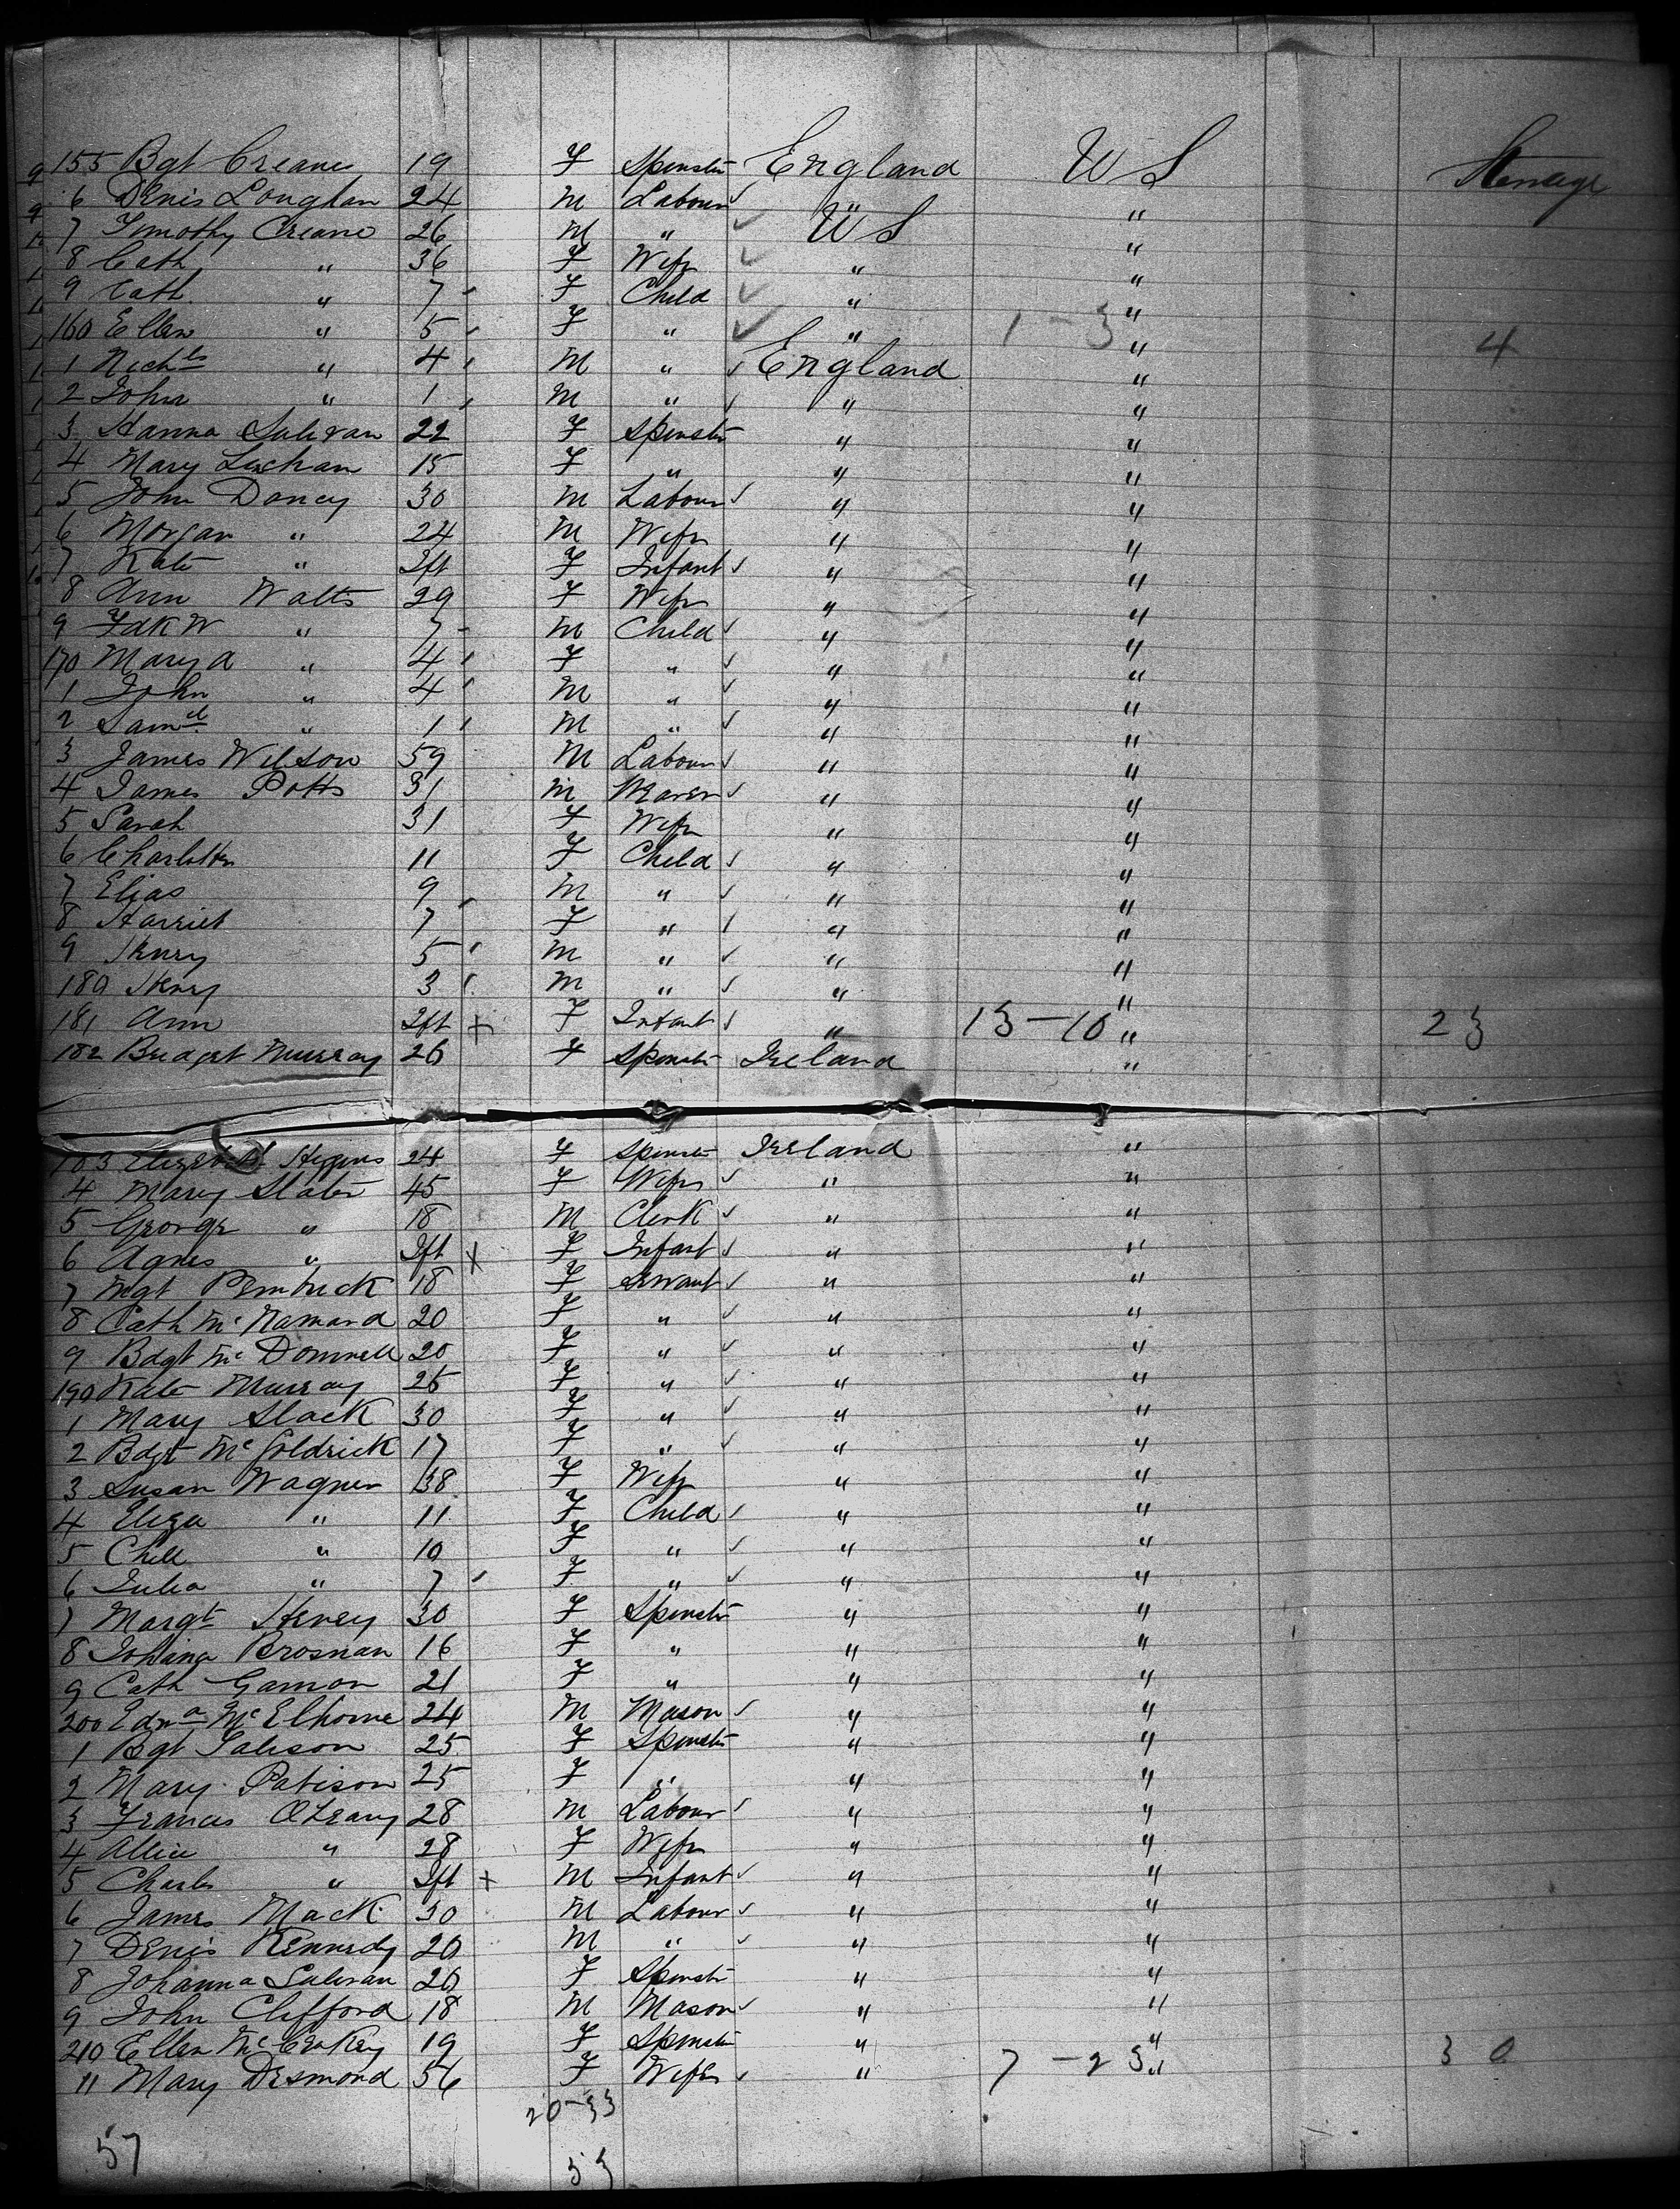 155 Bgt Creane 19 F Spenstr England W S Steerage
6 Denis Longhan 24 M Labour " "
7 Timothy Creane 26 M " W S "
8 Cath " 36 F Wife " "
9 Cath " 7 F Child " "
160 Ellen " 5 F " " 1-3 "
1 Nichls " 4 M " England " 4
2 John " 1 M " " "
3 Hanna Sulivan 22 F Spenstr " "
4 Mary 15 F " " "
5 John Dancy 30 M Labour " "
6 Morgan " 24 M Wife " "
7 Kate " Ift F Infant " "
8 Ann Watts 29 F Wife " "
9 Fdk W " 7 M Child " "
170 Mary A " 4 F " " "
1 John " 4 M " " "
2 Saml " 1 M " " "
3 James Wilson 59 M Labour " "
4 James Potts 31 M Weaver " "
5 Sarah 31 F Wife " "
6 Charlotte 11 F Child " "
7 Elias 9 M " " "
8 Harriet 7 F " " "
9 Henry 5 M " " "
180 Henry 3 M " " "
181 Ann Ift + F Infant " 13-10 " 23
182 Bridget Murray 26 F Spenstr Ireland "
183 Higgins 24 F Spenstr Ireland "
4 Mary Slater 45 F Wife " "
5 George " 18 M Clerk " "
6 Agnes " Ift x F Infant " "
7 Mgt Pembrick 18 F Servant " "
8 Cath McNamara 20 F " " "
9 Bdgt McDonnell 20 F " " "
190 Kate Murray 25 F " " "
1 Mary Slack 30 F " " "
2 Bdgt McGoldrick 17 F " " "
3 Susan Wagner 38 F Wife " "
4 Eliza " 11 F Child " "
5 " 10 F " " "
6 Julia " 7 F " " "
7 Margt 30 F Spenstr " "
8 Brosnan 16 F " " "
9 Cath Gamon 21 F " " "
200 McElhorne 24 M Mason " "
1 Bgt 25 F Spenstr " "
2 Mary Patison 25 F " " "
3 Francis OLeary 28 M Labour " "
4 Allice " 28 F Wife " "
5 Charles " Ift + M Infant " "
6 James Mack 30 M Labour " "
7 Denis Kennedy 20 M " " "
8 Johanna Sulivan 20 F Spenstr " "
9 John Clifford 18 M Mason " "
210 Ellen 19 F Spenstr " "
11 Mary Desmond 56 F Wife " 7-23 " 30
20-33
57 53